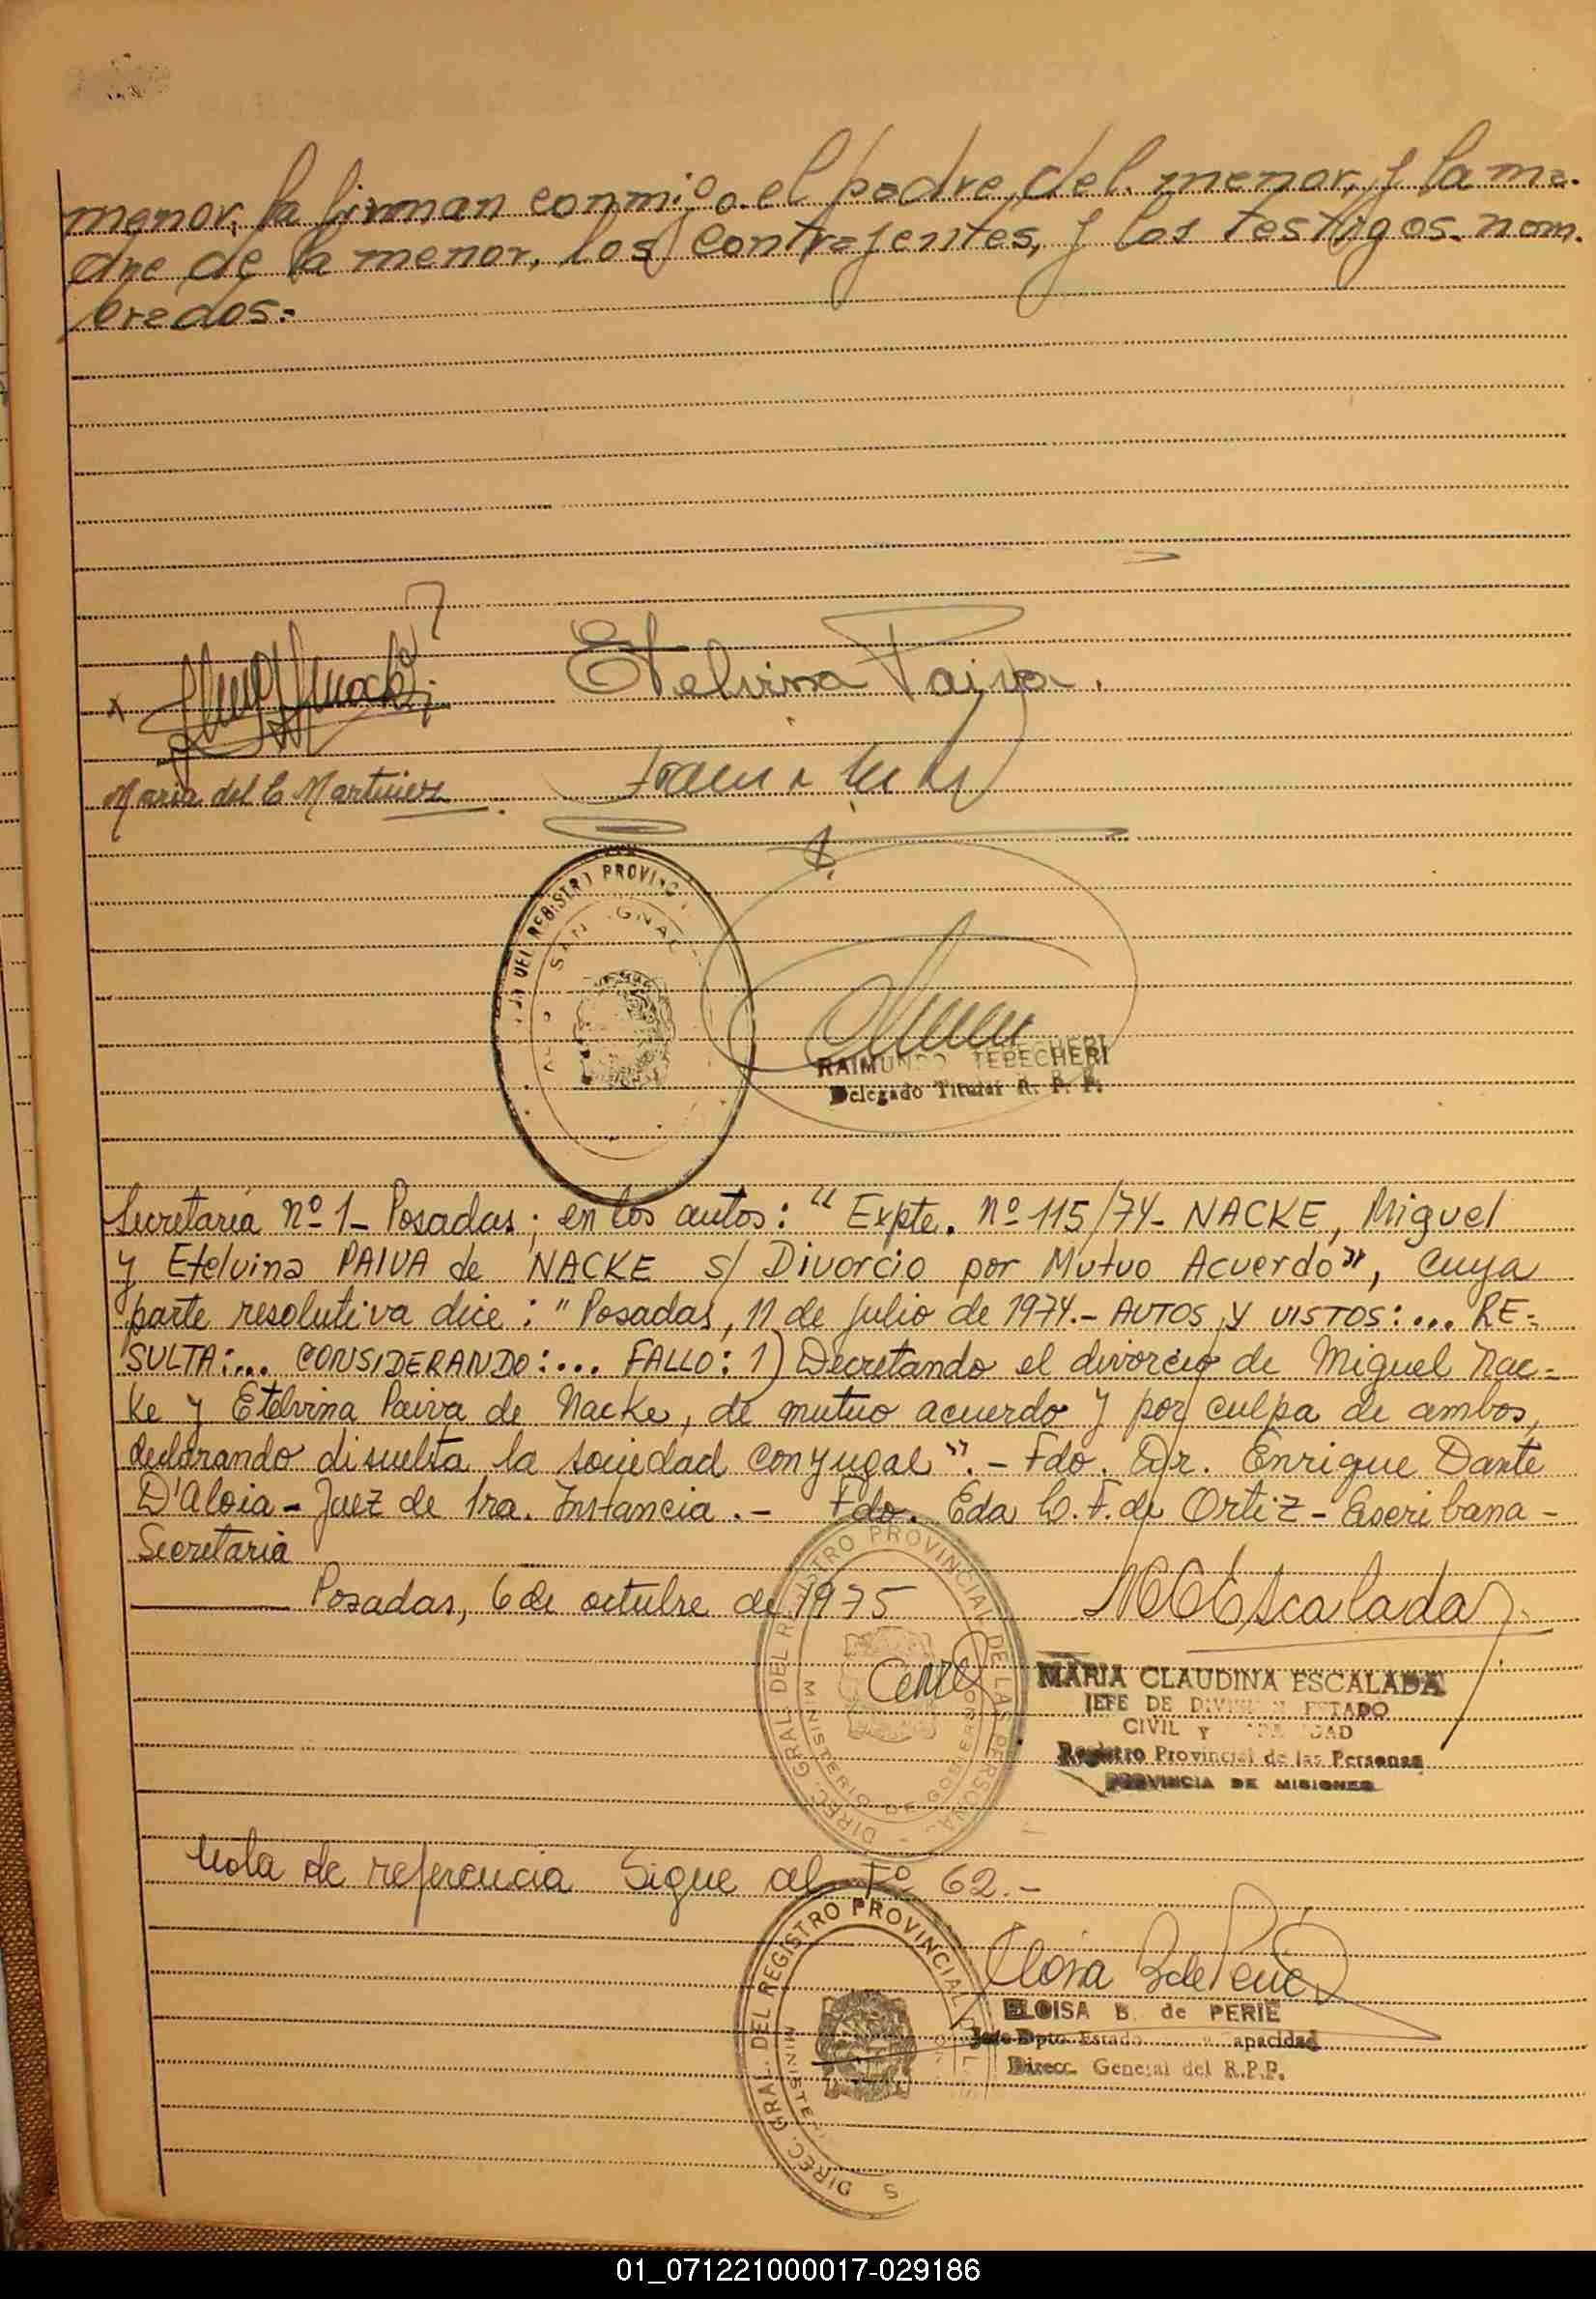 menor, la firman conmigo el padre del menor, y la ma-
dre de la menor, los contrayentes, y los testigos nom-
brados.-
Etelvina Paiva.
Maria del C Martinez
REGISTRO PROVINC
SAN IGNAC
RAIMUNDO TEBECHERI
Delegado Titular R. P. P.
Secretaría nº 1- Posadas; en los autos: "Expte. nº 115/74- NACKE, Miguel
y Etelvina PAIVA de NACKE s/ Divorcio por Mutuo Acuerdo", cuya
parte resolutiva dice: "Posadas, 11 de julio de 1974.- AUTOS Y VISTOS:... RE-
SULTA:... CONSIDERANDO:... FALLO: 1) Decretando el divorcio de Miguel Nac-
ke y Etelvina Paiva de Nacke, de mutuo acuerdo y por culpa de ambos,
declarando disuelta la sociedad conyugal".- Fdo. Dr. Enrique Dante
D'Aloia - Juez de 1ra. Instancia.- Fdo. Eda L. F. de Ortiz - Escribana -
Secretaria
Posadas, 6 de octubre de 1975
MCEscalada
DIREC. GRAL. DEL REGISTRO PROVINCIAL DE LAS PERSONAS
MINISTERIO DE GOBIERNO
MARIA CLAUDINA ESCALADA
JEFE DE DIVISION ESTADO
CIVIL Y CAPACIDAD
Registro Provincial de las Personas
PROVINCIA DE MISIONES
Nota de referencia Sigue al Fº 62.-
Eloisa B de Perié
DIREC. GRAL. DEL REGISTRO PROVINCIAL
ELOISA B. de PERIE
Jefe Dpto. Estado apacidad
Direcc. General del R.P.P.
01_071221000017-029186